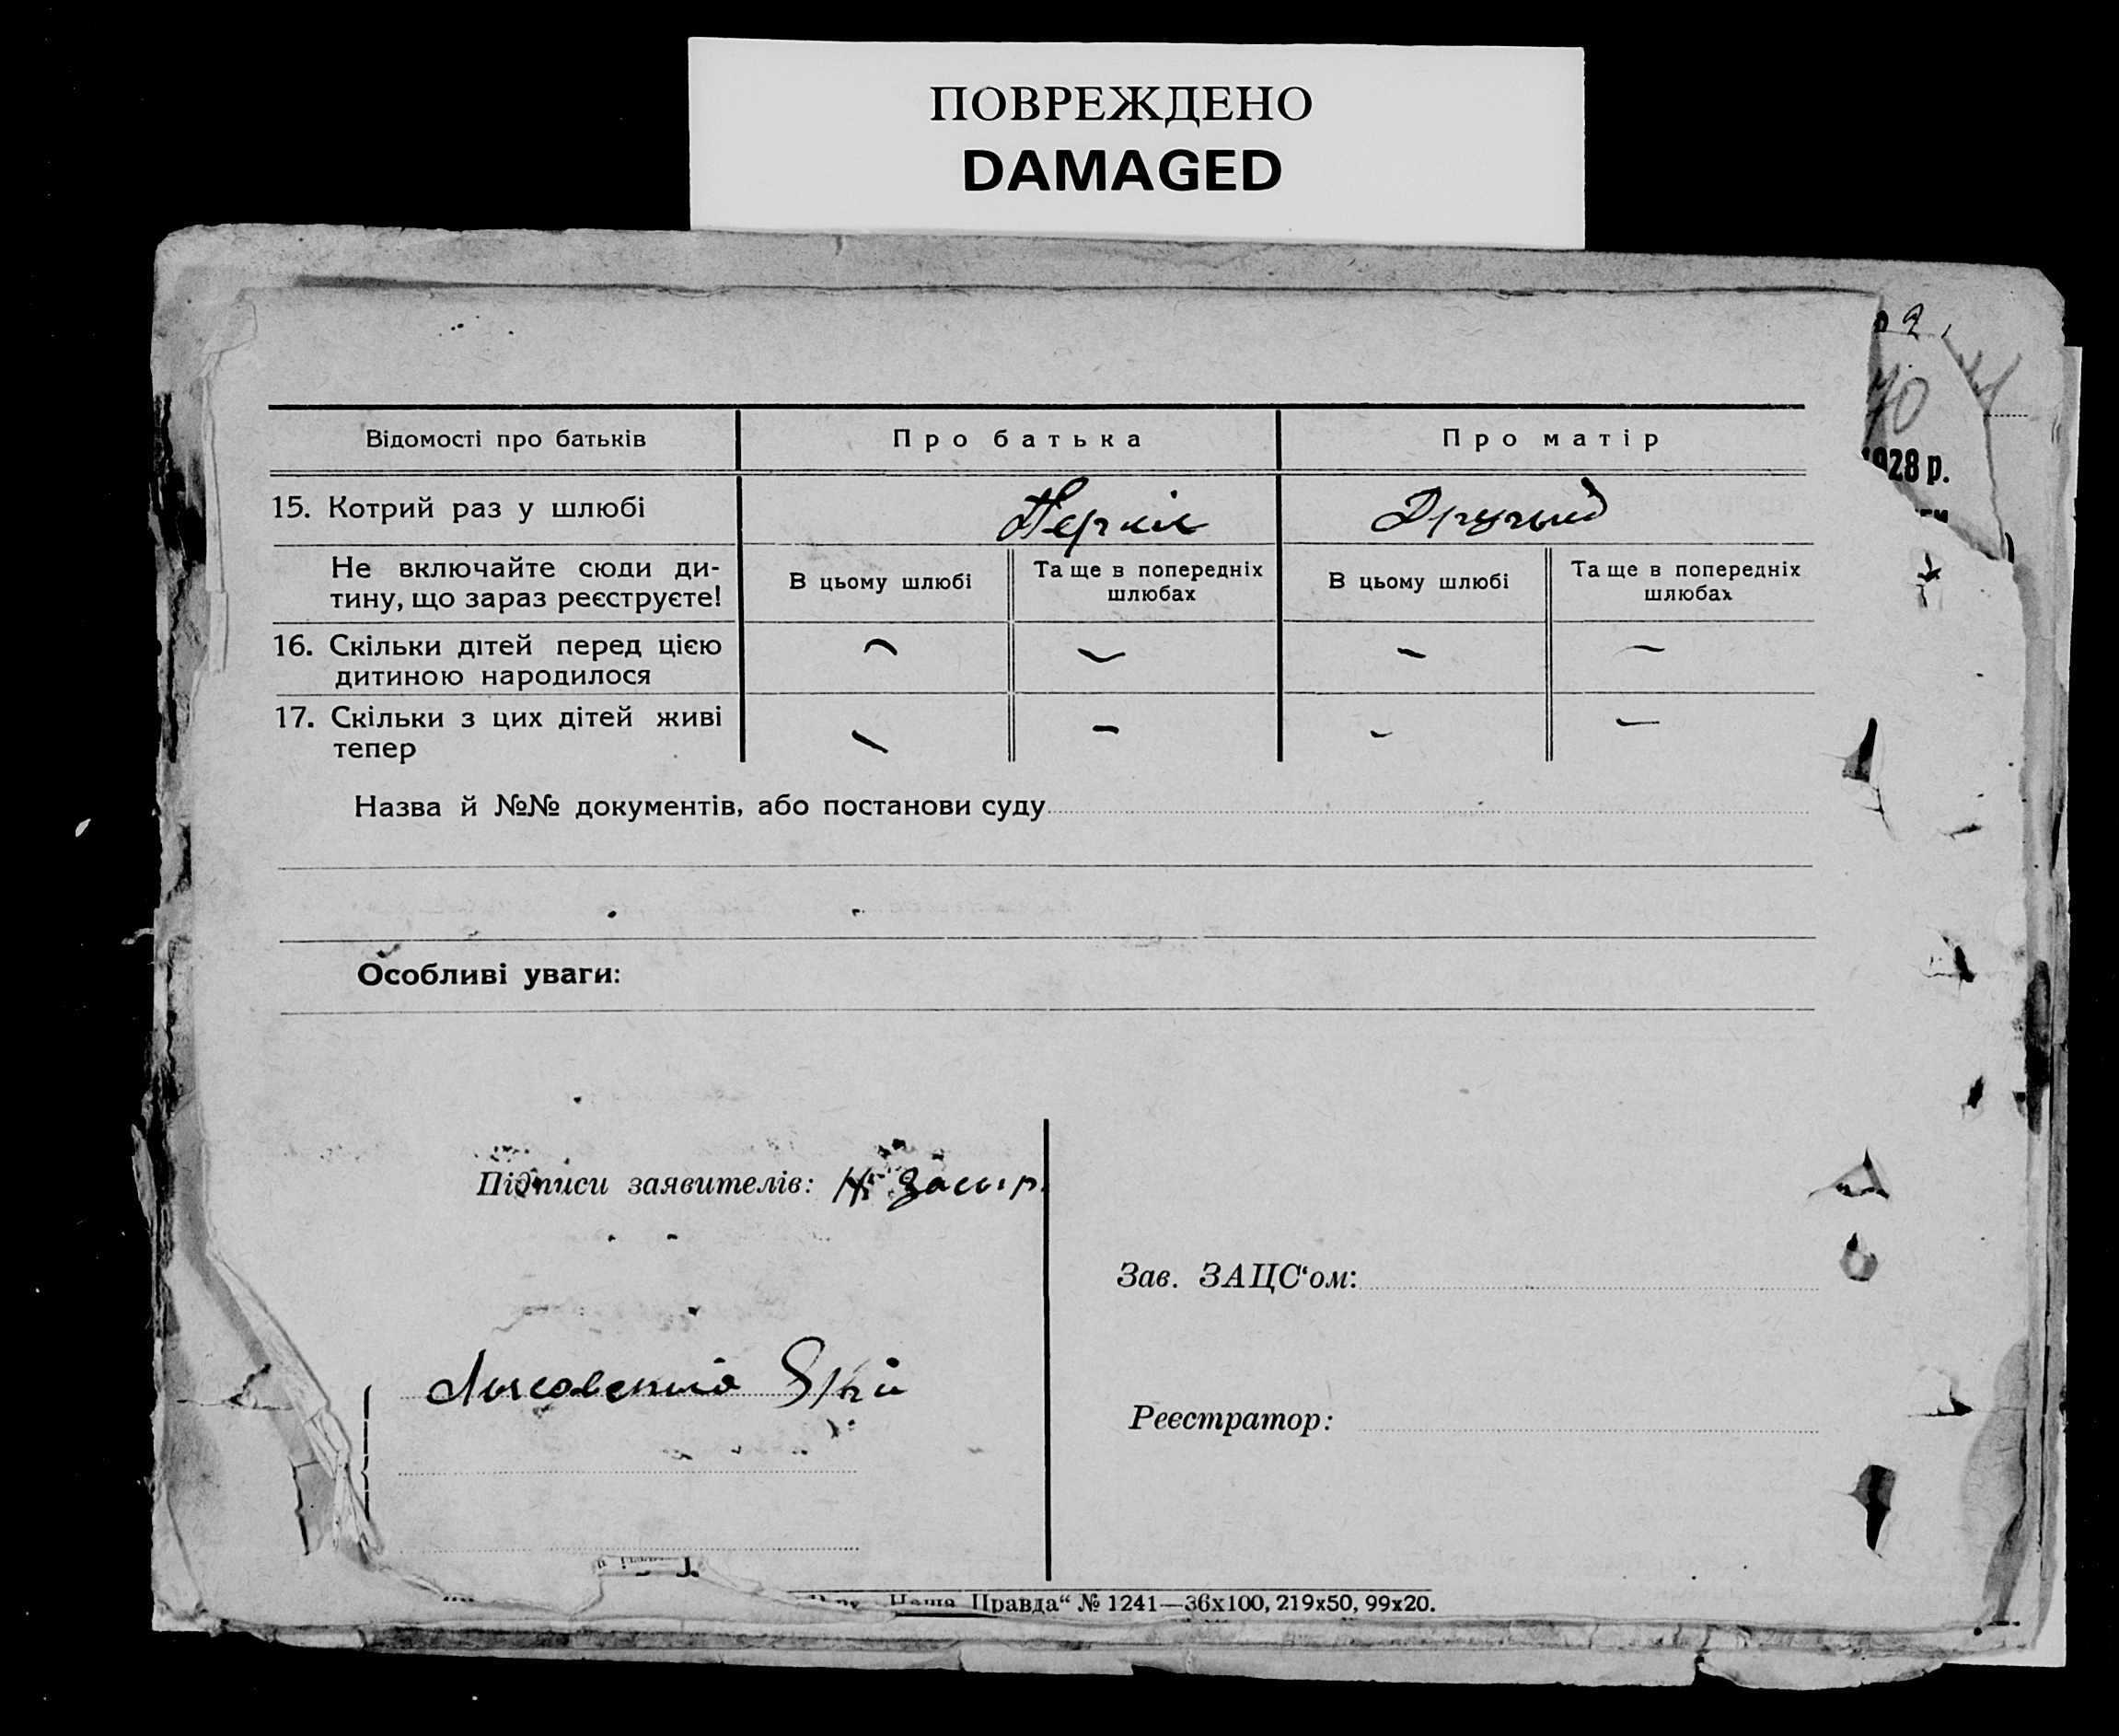 ПОВРЕЖДЕНО
DAMAGED
1928 р.
Відомості про батьків
Про батька
Про матір
15. Котрий раз у шлюбі
Не включайте сюди ди-
тину, що зараз реєструєте!
В цьому шлюбі
Та ще в попередніх
шлюбах
В цьому шлюбі
Та ще в попередніх
шлюбах
16. Скільки дітей перед цією
дитиною народилося
17. Скільки з цих дітей живі
тепер
Назва й №№ документів, або постанови суду
Особливі уваги:
Підписи заявителів:
Зав. ЗАЦС‘ом:
Реєстратор:
Наша Правда“ № 1241—36х100, 219х50, 99х20.